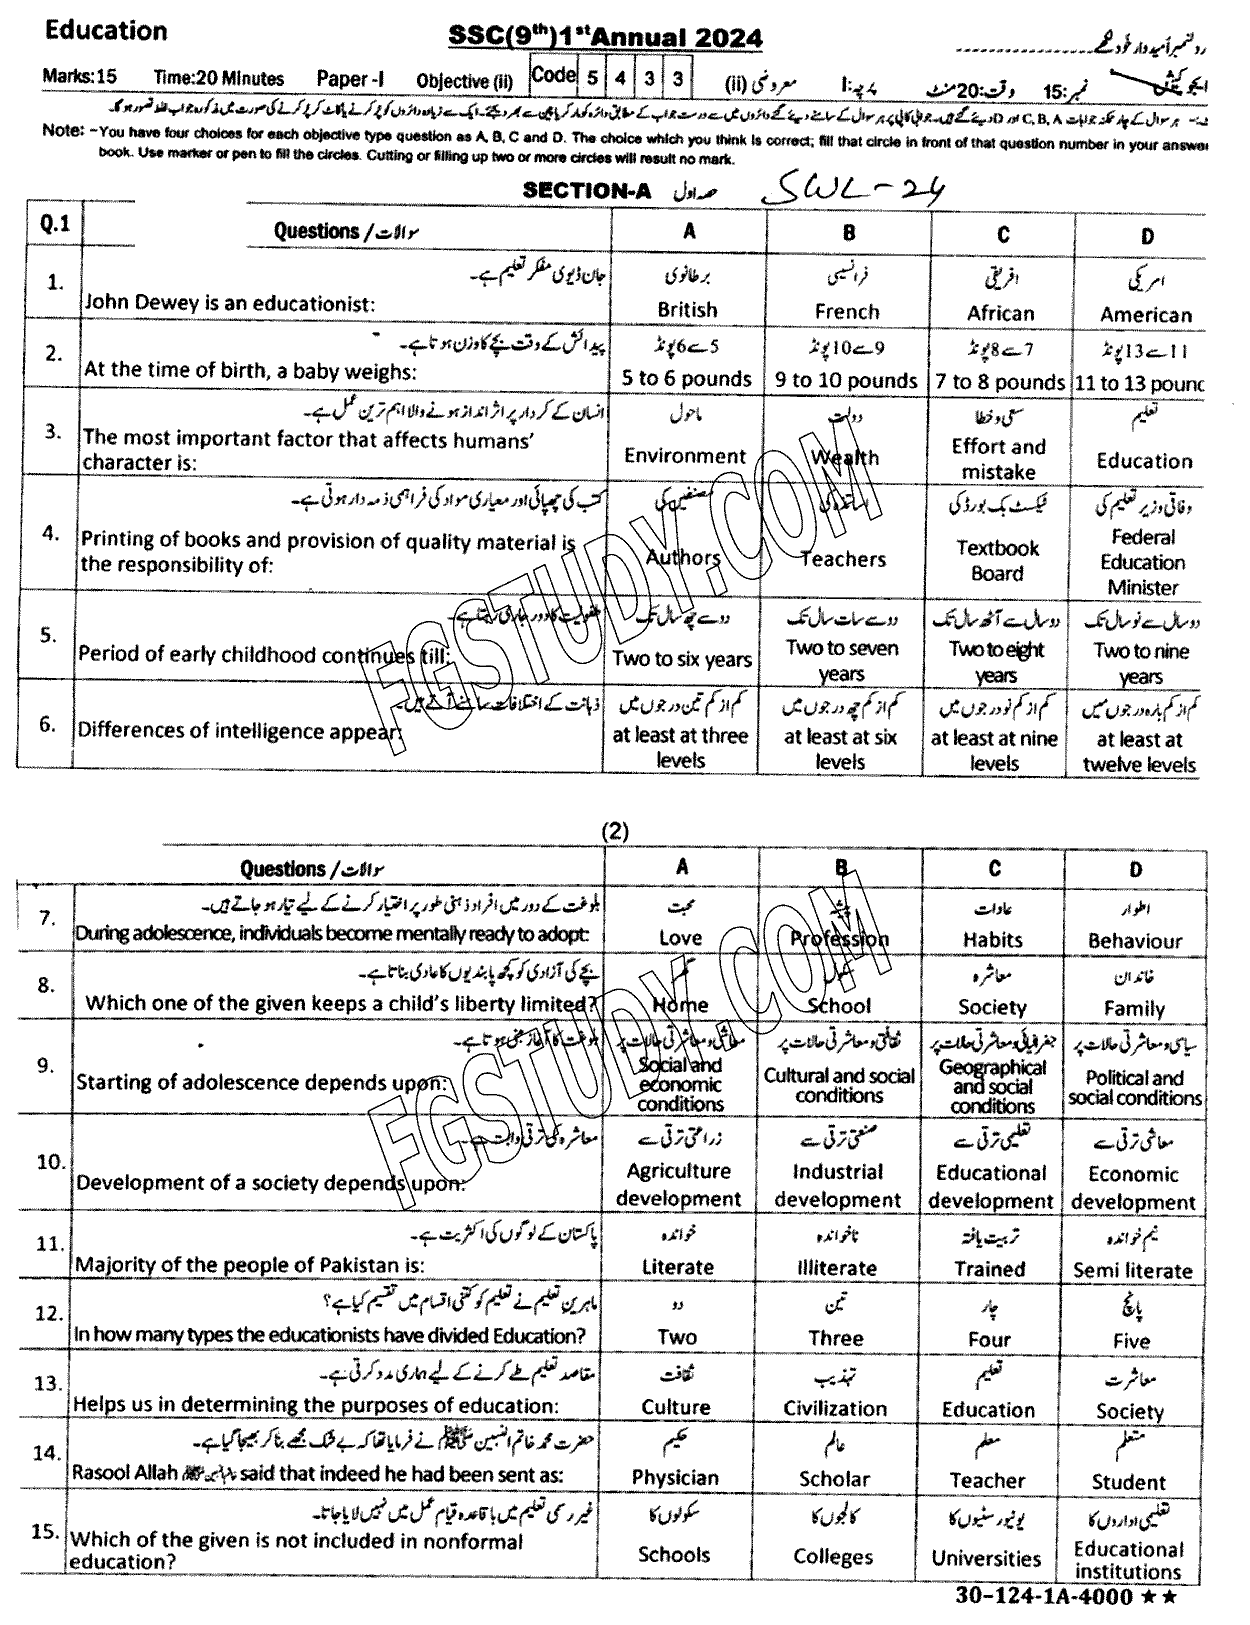 Education
SSC(9th)1st Annual 2024
رولنمبر اُمیدوار خود لکھے
Marks:15 Time:20 Minutes Paper -I Objective (ii) Code 5 4 3 3 معروضی (ii) پرچہ:I وقت:20 منٹ نمبر:15 ایجوکیشن
Note: -You have four choices for each objective type question as A, B, C and D. The choice which you think is correct; fill that circle in front of that question number in your answer
book. Use marker or pen to fill the circles. Cutting or filling up two or more circles will result no mark.
SECTION-A حصہ اول SWL-24
Q.1 Questions / سوالات A B C D
1. جان ڈیوی مفکر تعلیم ہے۔ برطانوی فرانسیسی افریقی امریکی
John Dewey is an educationist: British French African American
2. پیدائش کے وقت بچے کا وزن ہوتا ہے۔ 5 سے 6 پونڈ 9 سے 10 پونڈ 7 سے 8 پونڈ 11 سے 13 پونڈ
At the time of birth, a baby weighs: 5 to 6 pounds 9 to 10 pounds 7 to 8 pounds 11 to 13 pounc
3. انسان کے کردار پر اثر انداز ہونے والا اہم ترین عمل ہے۔ ماحول دولت سعی و خطا تعلیم
The most important factor that affects humans' character is: Environment Wealth Effort and mistake Education
4. کتب کی چھپائی اور معیاری مواد کی فراہمی ذمہ دار ہوتی ہے۔ مصنفین کی اساتذہ کی ٹیکسٹ بک بورڈ کی وفاقی وزیر تعلیم کی
Printing of books and provision of quality material is the responsibility of: Authors Teachers Textbook Board Federal Education Minister
5. طفولیت کا دور جاری رہتا ہے۔ دو سے چھ سال تک دو سے سات سال تک دو سال سے آٹھ سال تک دو سال سے نو سال تک
Period of early childhood continues till: Two to six years Two to seven years Two to eight years Two to nine years
6. ذہانت کے اختلافات سامنے آتے ہیں۔ کم از کم تین درجوں میں کم از کم چھ درجوں میں کم از کم نو درجوں میں کم از کم بارہ درجوں میں
Differences of intelligence appear: at least at three levels at least at six levels at least at nine levels at least at twelve levels
(2)
Questions / سوالات A B C D
7. بلوغت کے دور میں افراد ذہنی طور پر اختیار کرنے کے لیے تیار ہو جاتے ہیں۔ محبت پیشہ عادات اطوار
During adolescence, individuals become mentally ready to adopt: Love Profession Habits Behaviour
8. بچے کی آزادی کو کچھ پابندیوں کا عادی بناتا ہے۔ گھر سکول معاشرہ خاندان
Which one of the given keeps a child's liberty limited? Home School Society Family
9. بلوغت کا آغاز مبنی ہوتا ہے۔ معاشی و معاشرتی حالات پر ثقافتی و معاشرتی حالات پر جغرافیائی و معاشرتی حالات پر سیاسی و معاشرتی حالات پر
Starting of adolescence depends upon: Social and economic conditions Cultural and social conditions Geographical and social conditions Political and social conditions
10. معاشرہ کی ترقی وابستہ ہے۔ زراعتی ترقی سے صنعتی ترقی سے تعلیمی ترقی سے معاشی ترقی سے
Development of a society depends upon: Agriculture development Industrial development Educational development Economic development
11. پاکستان کے لوگوں کی اکثریت ہے۔ خواندہ ناخواندہ تربیت یافتہ نیم خواندہ
Majority of the people of Pakistan is: Literate Illiterate Trained Semi literate
12. ماہرین تعلیم نے تعلیم کو کتنی اقسام میں تقسیم کیا ہے؟ دو تین چار پانچ
In how many types the educationists have divided Education? Two Three Four Five
13. مقاصد تعلیم طے کرنے کے لیے ہماری مدد کرتی ہے۔ ثقافت تہذیب تعلیم معاشرت
Helps us in determining the purposes of education: Culture Civilization Education Society
14. حضرت محمد خاتم النبیین ﷺ نے فرمایا تھا کہ بے شک مجھے بنا کر بھیجا گیا ہے۔ حکیم عالم معلم متعلم
Rasool Allah said that indeed he had been sent as: Physician Scholar Teacher Student
15. غیر رسمی تعلیم میں باقاعدہ قیام عمل میں نہیں لایا جاتا۔ سکولوں کا کالجوں کا یونیورسٹیوں کا تعلیمی اداروں کا
Which of the given is not included in nonformal education? Schools Colleges Universities Educational institutions
30-124-1A-4000 ★★
FGSTUDY.COM
FGSTUDY.COM